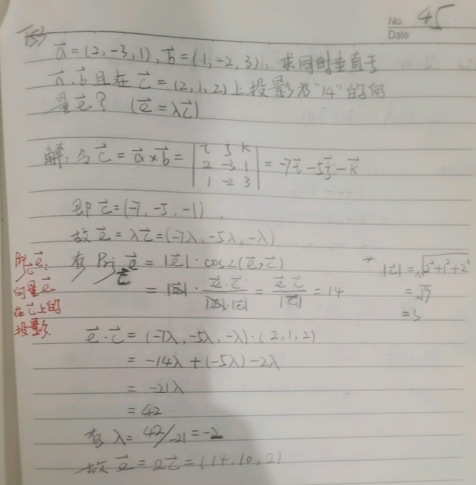 No. 45
Date
a⃗=(2,-3,1), b⃗=(1,-2,3), 求同时垂直于
a⃗,b⃗且在c⃗=(2,1,2)上投影为"14"的向
量e⃗? (e⃗=λc⃗)
解:令c⃗=a⃗×b⃗=|i j k; 2 -3 1; 1 -2 3|=-7i⃗-5j⃗-k⃗
即c⃗=(-7,-5,-1)
故e⃗=λc⃗=(-7λ,-5λ,-λ)
有Prj_c⃗ e⃗=|e⃗|·cos∠(e⃗,c⃗)
=|e⃗|·(e⃗·c⃗)/(|e⃗|·|c⃗|)=(e⃗·c⃗)/|c⃗|=14
* |c⃗|=√2²+1²+2²
=√9
=3
向量e⃗
在c⃗上的
投影
e⃗·c⃗=(-7λ,-5λ,-λ)·(2,1,2)
=-14λ+(-5λ)-2λ
=-21λ
=42
有λ=42/-21=-2
故e⃗=2c⃗=(14,10,2)